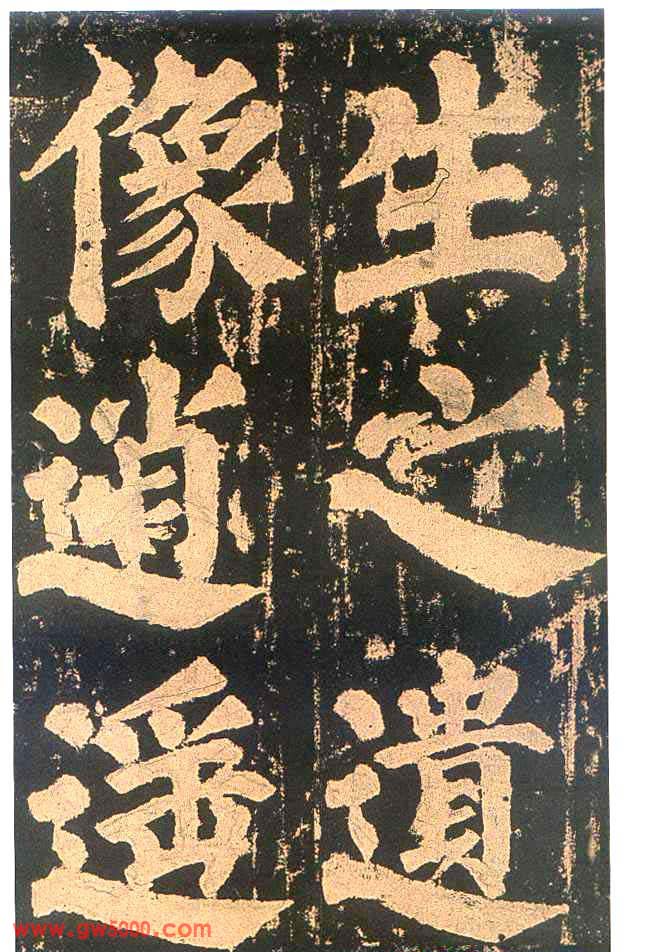 生之遺
像逍遥
www.gw5000.com